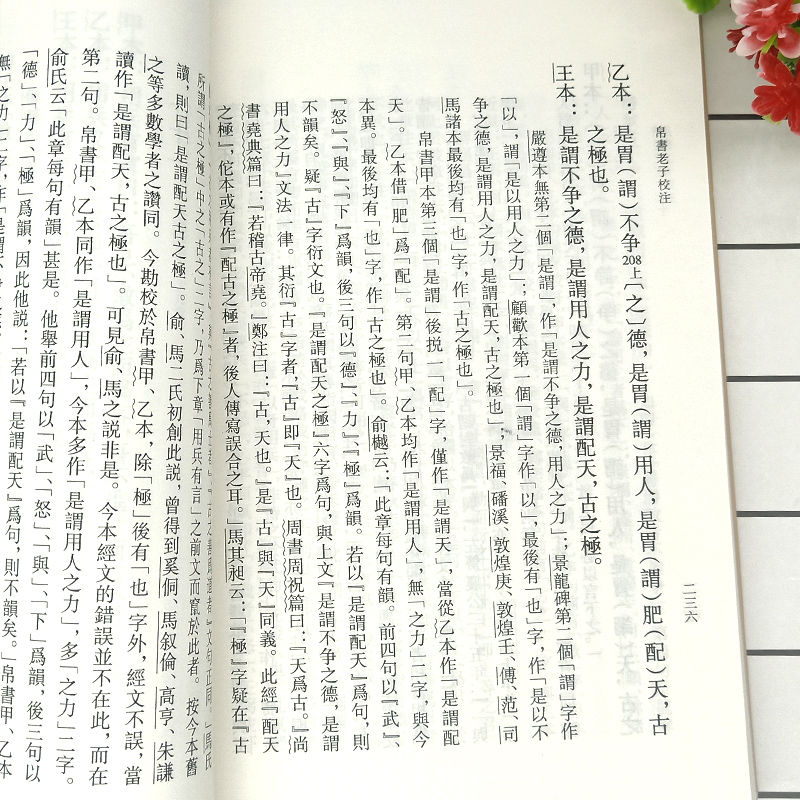 帛書老子校注
二三六
乙本：是胃（謂）不争208上〔之〕德，是胃（謂）用人，是胃（謂）肥（配）天，古
之極也。
王本：是謂不争之德，是謂用人之力，是謂配天，古之極。
嚴遵本無第二個「是謂」，作「是謂不争之德，用人之力」；景龍碑第二個「謂」字作
「以」，謂「是以用人之力」；顧歡本第一個「謂」字作「以」，最後有「也」字，作「是以不
争之德，是謂用人之力，是謂配天，古之極也」；景福、磻溪、敦煌庚、敦煌壬、傅、范、司
馬諸本最後均有「也」字，作「古之極也」。
帛書甲本第三個「是謂」後挩一「配」字，僅作「是謂天」，當從乙本作「是謂配
天」。乙本借「肥」爲「配」。第二句甲、乙本均作「是謂用人」，無「之力」二字，與今
本異。最後均有「也」字，作「古之極也」。俞樾云：「此章每句有韻。前四句以『武』、
『怒』、『與』、『下』爲韻，後三句以『德』、『力』、『極』爲韻。若以『是謂配天』爲句，則
不韻矣。疑『古』字衍文也。『是謂配天之極』六字爲句，與上文『是謂不争之德，是謂
用人之力』文法一律。其衍『古』字者，『古』即『天』也。周書周祝篇曰：『天爲古。』尚
書堯典篇曰：『若稽古帝堯。』鄭注曰：『古，天也。』是『古』與『天』同義。此經『配天
之極』，佗本或有作『配古之極』者，後人傳寫誤合之耳。」馬其昶云：「『極』字疑在『古
所謂『古之極』中之『古之』二字，乃爲下章『用兵有言』之前文而竄於此者。按今本舊
讀，則曰「是謂配天古之極」。俞、馬二氏初創此説，曾得到奚侗、馬叙倫、高亨、朱謙
之等多數學者之讚同。今勘校於帛書甲、乙本，除「極」後有「也」字外，經文不誤，當
讀作「是謂配天，古之極也」。可見俞、馬之説非是。今本經文的錯誤並不在此，而在
第二句。帛書甲、乙本同作「是謂用人」，今本多作「是謂用人之力」，多「之力」二字。
俞氏云「此章每句有韻」甚是。他舉前四句以「武」、「怒」、「與」、「下」爲韻，後三句以
「德」、「力」、「極」爲韻，因此他説：「若以『是謂配天』爲句，則不韻矣。」帛書甲、乙本
無「之力」二字，作「是謂